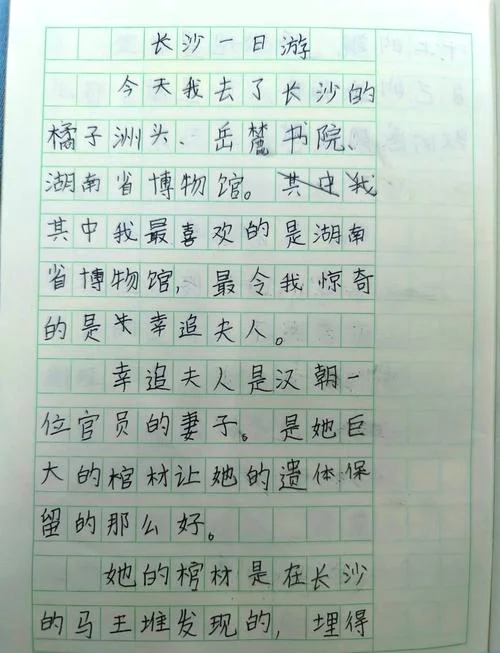 长沙一日游
今天我去了长沙的
橘子洲头、岳麓书院、
湖南省博物馆。其中我
其中我最喜欢的是湖南
省博物馆,最令我惊奇
的是失幸追夫人。
幸追夫人是汉朝一
位官员的妻子。是她巨
大的棺材让她的遗体保
留的那么好。
她的棺材是在长沙
的马王堆发现的,埋得